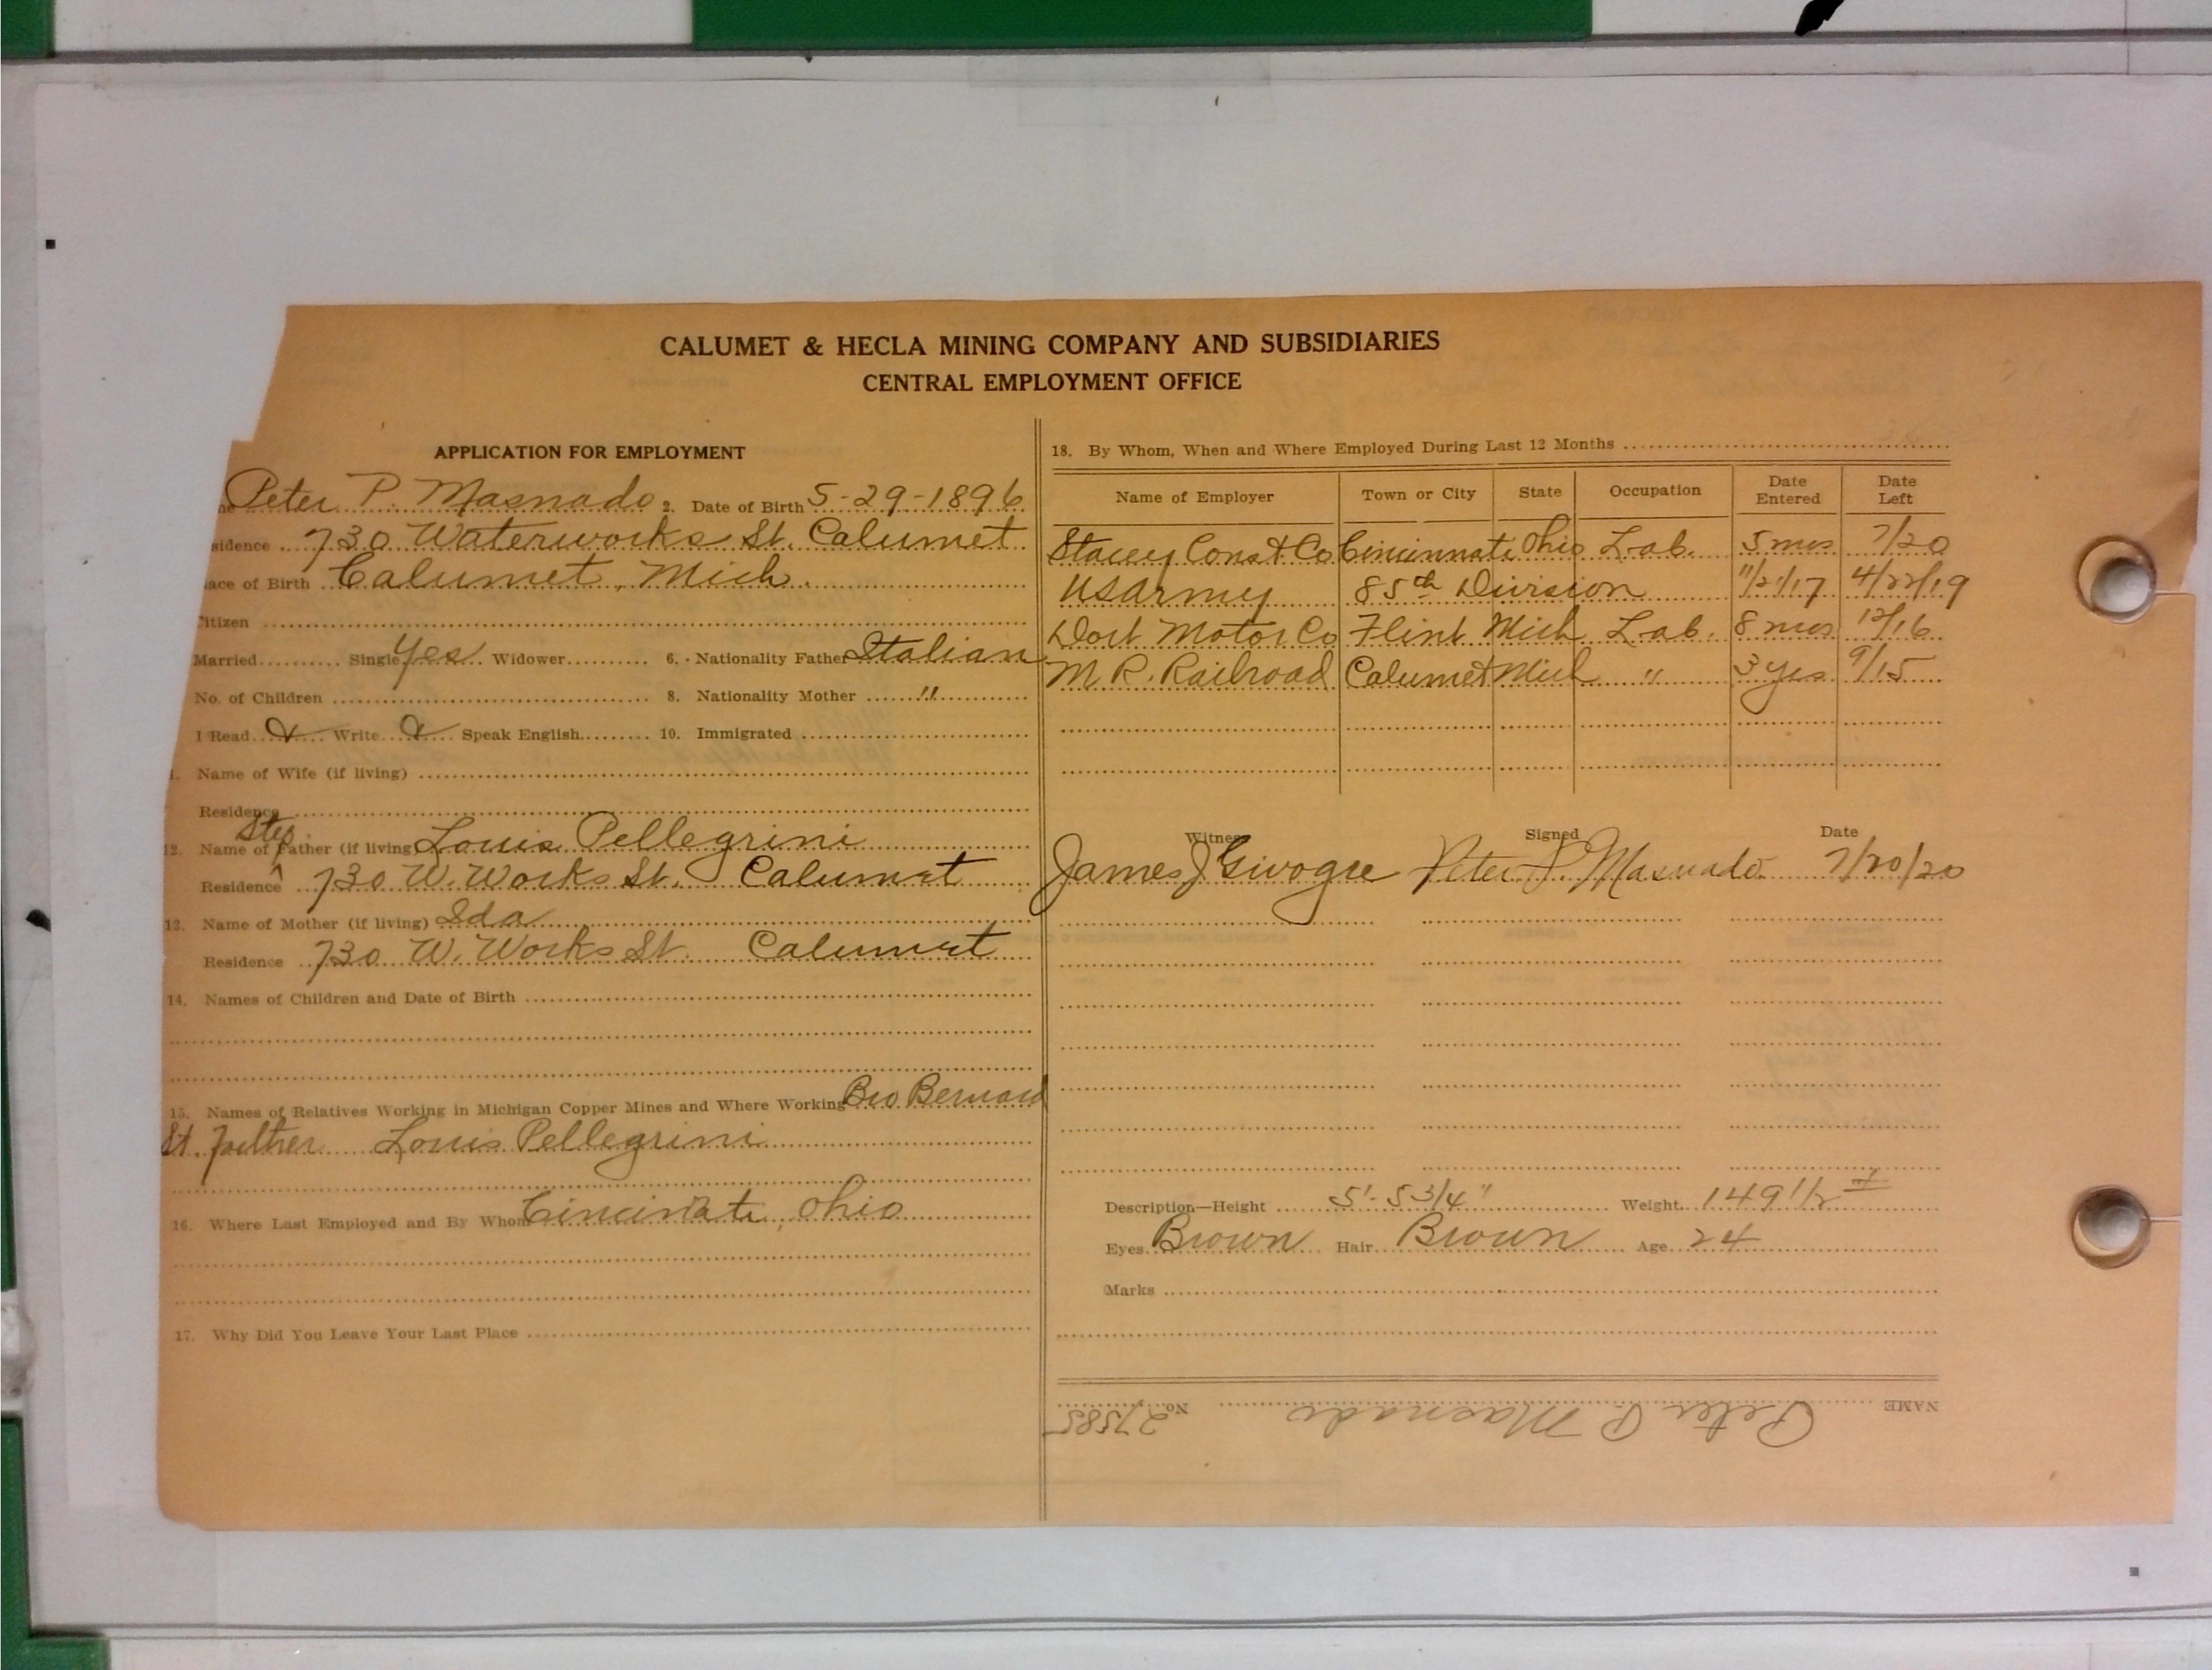 CALUMET & HECLA MINING COMPANY AND SUBSIDIARIES
CENTRAL EMPLOYMENT OFFICE
APPLICATION FOR EMPLOYMENT
Peter P. Masnado 2. Date of Birth 5-29-1896
sidence 730 Waterworks St. Calumet
ace of Birth Calumet, Mich.
Citizen
Married Single Yes Widower 6. Nationality Father Italian
No. of Children 8. Nationality Mother "
I Read Write Speak English 10. Immigrated
Name of Wife (if living)
Residence
Step
12. Name of Father (if living) Louis Pellegrini
Residence 730 W. Works St. Calumet
13. Name of Mother (if living) Ida
Residence 730 W. Works St. Calumet
14. Names of Children and Date of Birth
15. Names of Relatives Working in Michigan Copper Mines and Where Working Bro Bernard
St. father Louis Pellegrini
16. Where Last Employed and By Whom Cincinnati, Ohio
17. Why Did You Leave Your Last Place
18. By Whom, When and Where Employed During Last 12 Months
Name of Employer Town or City State Occupation Date Entered Date Left
Stacey Const Co Cincinnati Ohio Lab. 5 mos 7/20
US Army 85th Division 11/21/17 4/22/19
Dort Motor Co Flint Mich Lab. 8 mos 12/16
M R. Railroad Calumet Mich " 3 yes 9/15
Witness Signed Date
James J Peter P. Masnado 7/20/20
Description—Height 5'-5 3/4" Weight 149 1/2 #
Eyes Brown Hair Brown Age 24
Marks
NAME Peter P. Masnado No. 27585